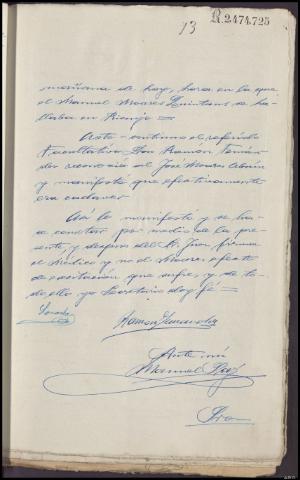 13
R.2474.725
mañana de hoy, hora en la que
el Manuel Moares Quintans se ha-
llaba en Rianjo =
Acto continuo el referido
Facultativo Don Ramón
reconoció al José Moares
y manifestó que efectivamente
era cadaver
Así lo manifestó y se ha-
ce constar por medio de la pre-
sente, y después del Sr. Juez firma
el Médico y no el Moares efecto
de excitación que sufre, y de to-
do ello yo Secretario doy fé =
Ante mí
Manuel